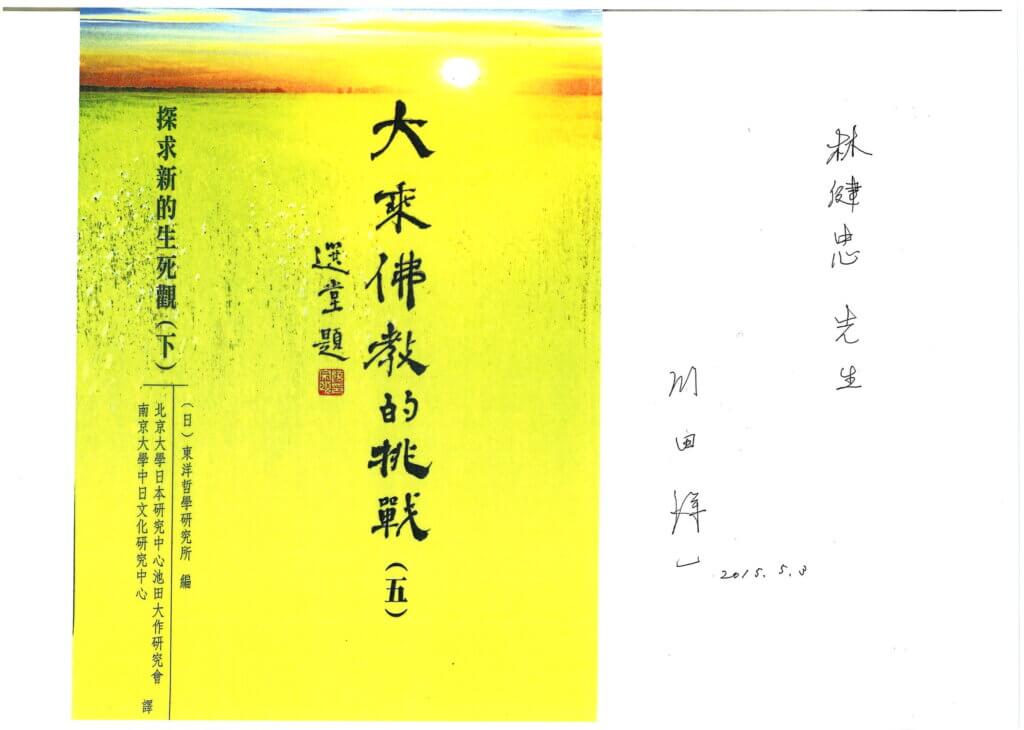 大乘佛教的挑戰(五)
選堂題
探求新的生死觀(下)
(日)東洋哲學研究所 編
北京大學日本研究中心池田大作研究會
南京大學中日文化研究中心
譯
林健忠 先生
川田洋一
2015. 5. 3